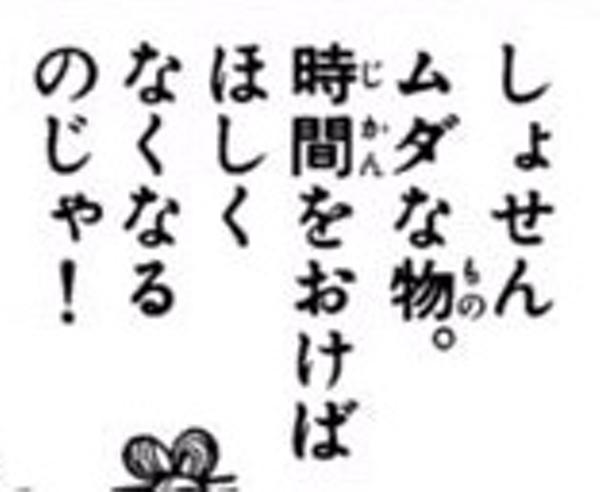 しょせん
ムダな物。
時間をおけば
ほしく
なくなる
のじゃ!